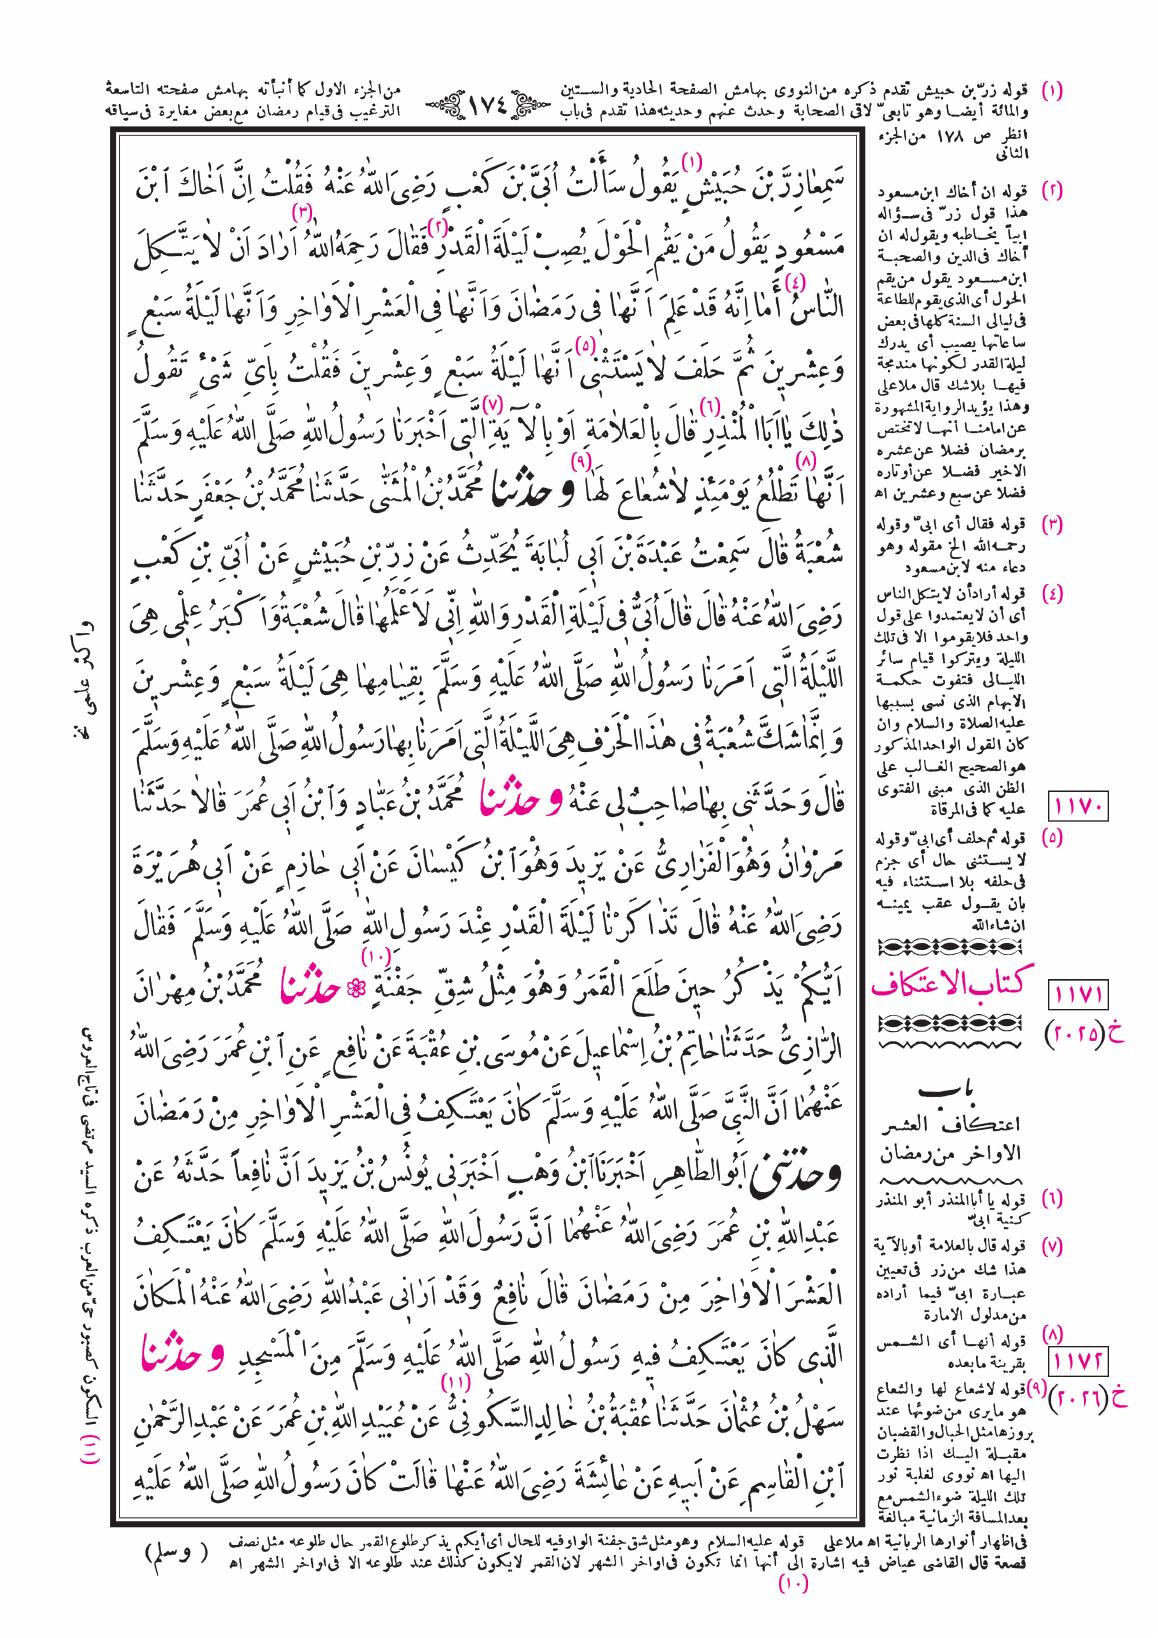 (١) قوله زرّ بن حبيش تقدم ذكره من النووى بهامش الصفحة الحادية والستين
والمائة أيضا وهو تابعىّ لاقى الصحابة وحدث عنهم وحديثه هذا تقدم فى باب
١٧٤
من الجزء الاول كما أنبأته بهامش صفحته التاسعة
الترغيب فى قيام رمضان مع بعض مغايرة فى سياقه
انظر ص ١٧٨ من الجزء
الثانى
سَمِعَا زِرَّ بْنَ حُبَيْشٍ (١) يَقُولُ سَأَلْتُ اُبَىَّ بْنَ كَعْبٍ رَضِىَ اللّٰهُ عَنْهُ فَقُلْتُ اِنَّ اَخَاكَ ابْنَ
مَسْعُودٍ يَقُولُ مَنْ يَقُمِ الْحَوْلَ يُصِبْ لَيْلَةَ الْقَدْرِ (٢) فَقَالَ رَحِمَهُ اللّٰهُ (٣) اَرَادَ اَنْ لَا يَتَّكِلَ
النَّاسُ (٤) أَمَا اِنَّهُ قَدْ عَلِمَ اَنَّهَا فِى رَمَضَانَ وَاَنَّهَا فِى الْعَشْرِ الْاَوَاخِرِ وَاَنَّهَا لَيْلَةُ سَبْعٍ
وَعِشْرِينَ ثُمَّ حَلَفَ لَا يَسْتَثْنِى (٥) اَنَّهَا لَيْلَةُ سَبْعٍ وَعِشْرِينَ فَقُلْتُ بِاَىِّ شَىْءٍ تَقُولُ
ذٰلِكَ يَا اَبَا الْمُنْذِرِ (٦) قَالَ بِالْعَلَامَةِ اَوْ بِالْآيَةِ (٧) الَّتِى اَخْبَرَنَا رَسُولُ اللّٰهِ صَلَّى اللّٰهُ عَلَيْهِ وَسَلَّمَ
اَنَّهَا (٨) تَطْلُعُ يَوْمَئِذٍ لَا شُعَاعَ لَهَا (٩) وحدثنا مُحَمَّدُ بْنُ الْمُثَنّٰى حَدَّثَنَا مُحَمَّدُ بْنُ جَعْفَرٍ حَدَّثَنَا
شُعْبَةُ قَالَ سَمِعْتُ عَبْدَةَ بْنَ اَبِى لُبَابَةَ يُحَدِّثُ عَنْ زِرِّ بْنِ حُبَيْشٍ عَنْ اُبَىِّ بْنِ كَعْبٍ
رَضِىَ اللّٰهُ عَنْهُ قَالَ قَالَ اُبَىٌّ فِى لَيْلَةِ الْقَدْرِ وَاللّٰهِ اِنِّى لَاَعْلَمُهَا قَالَ شُعْبَةُ وَاَكْبَرُ عِلْمِى هِىَ
اللَّيْلَةُ الَّتِى اَمَرَنَا رَسُولُ اللّٰهِ صَلَّى اللّٰهُ عَلَيْهِ وَسَلَّمَ بِقِيَامِهَا هِىَ لَيْلَةُ سَبْعٍ وَعِشْرِينَ
وَاِنَّمَا شَكَّ شُعْبَةُ فِى هٰذَا الْحَرْفِ هِىَ اللَّيْلَةُ الَّتِى اَمَرَنَا بِهَا رَسُولُ اللّٰهِ صَلَّى اللّٰهُ عَلَيْهِ وَسَلَّمَ
قَالَ وَحَدَّثَنِى بِهَا صَاحِبٌ لِى عَنْهُ وحدثنا مُحَمَّدُ بْنُ عَبَّادٍ وَابْنُ اَبِى عُمَرَ قَالَا حَدَّثَنَا
مَرْوَانُ وَهُوَ الْفَزَارِىُّ عَنْ يَزِيدَ وَهُوَ ابْنُ كَيْسَانَ عَنْ اَبِى حَازِمٍ عَنْ اَبِى هُرَيْرَةَ
رَضِىَ اللّٰهُ عَنْهُ قَالَ تَذَاكَرْنَا لَيْلَةَ الْقَدْرِ عِنْدَ رَسُولِ اللّٰهِ صَلَّى اللّٰهُ عَلَيْهِ وَسَلَّمَ فَقَالَ
اَيُّكُمْ يَذْكُرُ حِينَ طَلَعَ الْقَمَرُ وَهُوَ مِثْلُ شِقِّ جَفْنَةٍ (١٠) ❁ حدثنا مُحَمَّدُ بْنُ مِهْرَانَ
الرَّازِىُّ حَدَّثَنَا حَاتِمُ بْنُ اِسْمَاعِيلَ عَنْ مُوسَى بْنِ عُقْبَةَ عَنْ نَافِعٍ عَنِ ابْنِ عُمَرَ رَضِىَ اللّٰهُ
عَنْهُمَا اَنَّ النَّبِىَّ صَلَّى اللّٰهُ عَلَيْهِ وَسَلَّمَ كَانَ يَعْتَكِفُ فِى الْعَشْرِ الْاَوَاخِرِ مِنْ رَمَضَانَ
وحدثنى اَبُو الطَّاهِرِ اَخْبَرَنَا ابْنُ وَهْبٍ اَخْبَرَنِى يُونُسُ بْنُ يَزِيدَ اَنَّ نَافِعاً حَدَّثَهُ عَنْ
عَبْدِ اللّٰهِ بْنِ عُمَرَ رَضِىَ اللّٰهُ عَنْهُمَا اَنَّ رَسُولَ اللّٰهِ صَلَّى اللّٰهُ عَلَيْهِ وَسَلَّمَ كَانَ يَعْتَكِفُ
الْعَشْرَ الْاَوَاخِرَ مِنْ رَمَضَانَ قَالَ نَافِعٌ وَقَدْ اَرَانِى عَبْدُ اللّٰهِ رَضِىَ اللّٰهُ عَنْهُ الْمَكَانَ
الَّذِى كَانَ يَعْتَكِفُ فِيهِ رَسُولُ اللّٰهِ صَلَّى اللّٰهُ عَلَيْهِ وَسَلَّمَ مِنَ الْمَسْجِدِ وحدثنا
سَهْلُ بْنُ عُثْمَانَ حَدَّثَنَا عُقْبَةُ بْنُ خَالِدٍ السَّكُونِىُّ (١١) عَنْ عُبَيْدِ اللّٰهِ بْنِ عُمَرَ عَنْ عَبْدِ الرَّحْمٰنِ
ابْنِ الْقَاسِمِ عَنْ اَبِيهِ عَنْ عَائِشَةَ رَضِىَ اللّٰهُ عَنْهَا قَالَتْ كَانَ رَسُولُ اللّٰهِ صَلَّى اللّٰهُ عَلَيْهِ
(٢) قوله ان أخاك ابن مسعود
هذا قول زرّ فى سؤاله
ابياً يخاطبه ويقول له ان
أخاك فى الدين والصحبة
ابن مسعود يقول من يقم
الحول أى الذى يقوم للطاعة
فى ليالى السنة كلها فى بعض
ساعاتها يصيب أى يدرك
ليلة القدر لكونها مندمجة
فيها بلاشك قال ملا على
وهذا يؤيد الرواية المشهورة
عن امامنا أنها لا تختص
برمضان فضلا عن عشره
الاخير فضلا عن أوتاره
فضلا عن سبع وعشرين اه
(٣) قوله فقال أى ابىّ وقوله
رحمه الله الخ مقوله وهو
دعاء منه لابن مسعود
(٤) قوله أراد أن لا يتكل الناس
أى أن لا يعتمدوا على قول
واحد فلا يقوموا الا فى تلك
الليلة ويتركوا قيام سائر
الليالى فتفوت حكمة
الابهام الذى نسى بسببها
عليه الصلاة والسلام وان
كان القول الواحد المذكور
هو الصحيح الغالب على
الظن الذى مبنى الفتوى
عليه كما فى المرقاة
(٥) قوله ثم حلف أى ابىّ وقوله
لا يستثنى حال أى جزم
فى حلفه بلا استثناء فيه
بان يقول عقب يمينه
ان شاء الله
كتاب الاعتكاف
باب
اعتكاف العشر
الاواخر من رمضان
(٦) قوله يا أبا المنذر أبو المنذر
كنية ابىّ
(٧) قوله قال بالعلامة أو بالآية
هذا شك من زر فى تعيين
عبارة ابىّ فيما أراده
من مدلول الامارة
(٨) قوله أنها أى الشمس
بقرينة مابعده
(٩) قوله لاشعاع لها والشعاع
هو مايرى من ضوئها عند
بروزها مثل الحبال والقضبان
مقبلة اليك اذا نظرت
اليها اه نووى لغلبة نور
تلك الليلة ضوء الشمس مع
بعد المسافة الزمانية مبالغة
١١٧٠
١١٧١
خ (٢٠٢٥)
١١٧٢
خ (٢٠٢٦)
وأكبر علمى نخ
(١١) السكون كصبور حىّ من العرب ذكره السيد مرتضى فى تاج العروس
فى اظهار أنوارها الربانية اه ملا على قوله عليه السلام وهو مثل شق جفنة الواو فيه للحال أى أيكم يذكر طلوع القمر حال طلوعه مثل نصف
قصعة قال القاضى عياض فيه اشارة الى أنها انما تكون فى اواخر الشهر لان القمر لا يكون كذلك عند طلوعه الا فى اواخر الشهر اه
(١٠)
( وسلم )